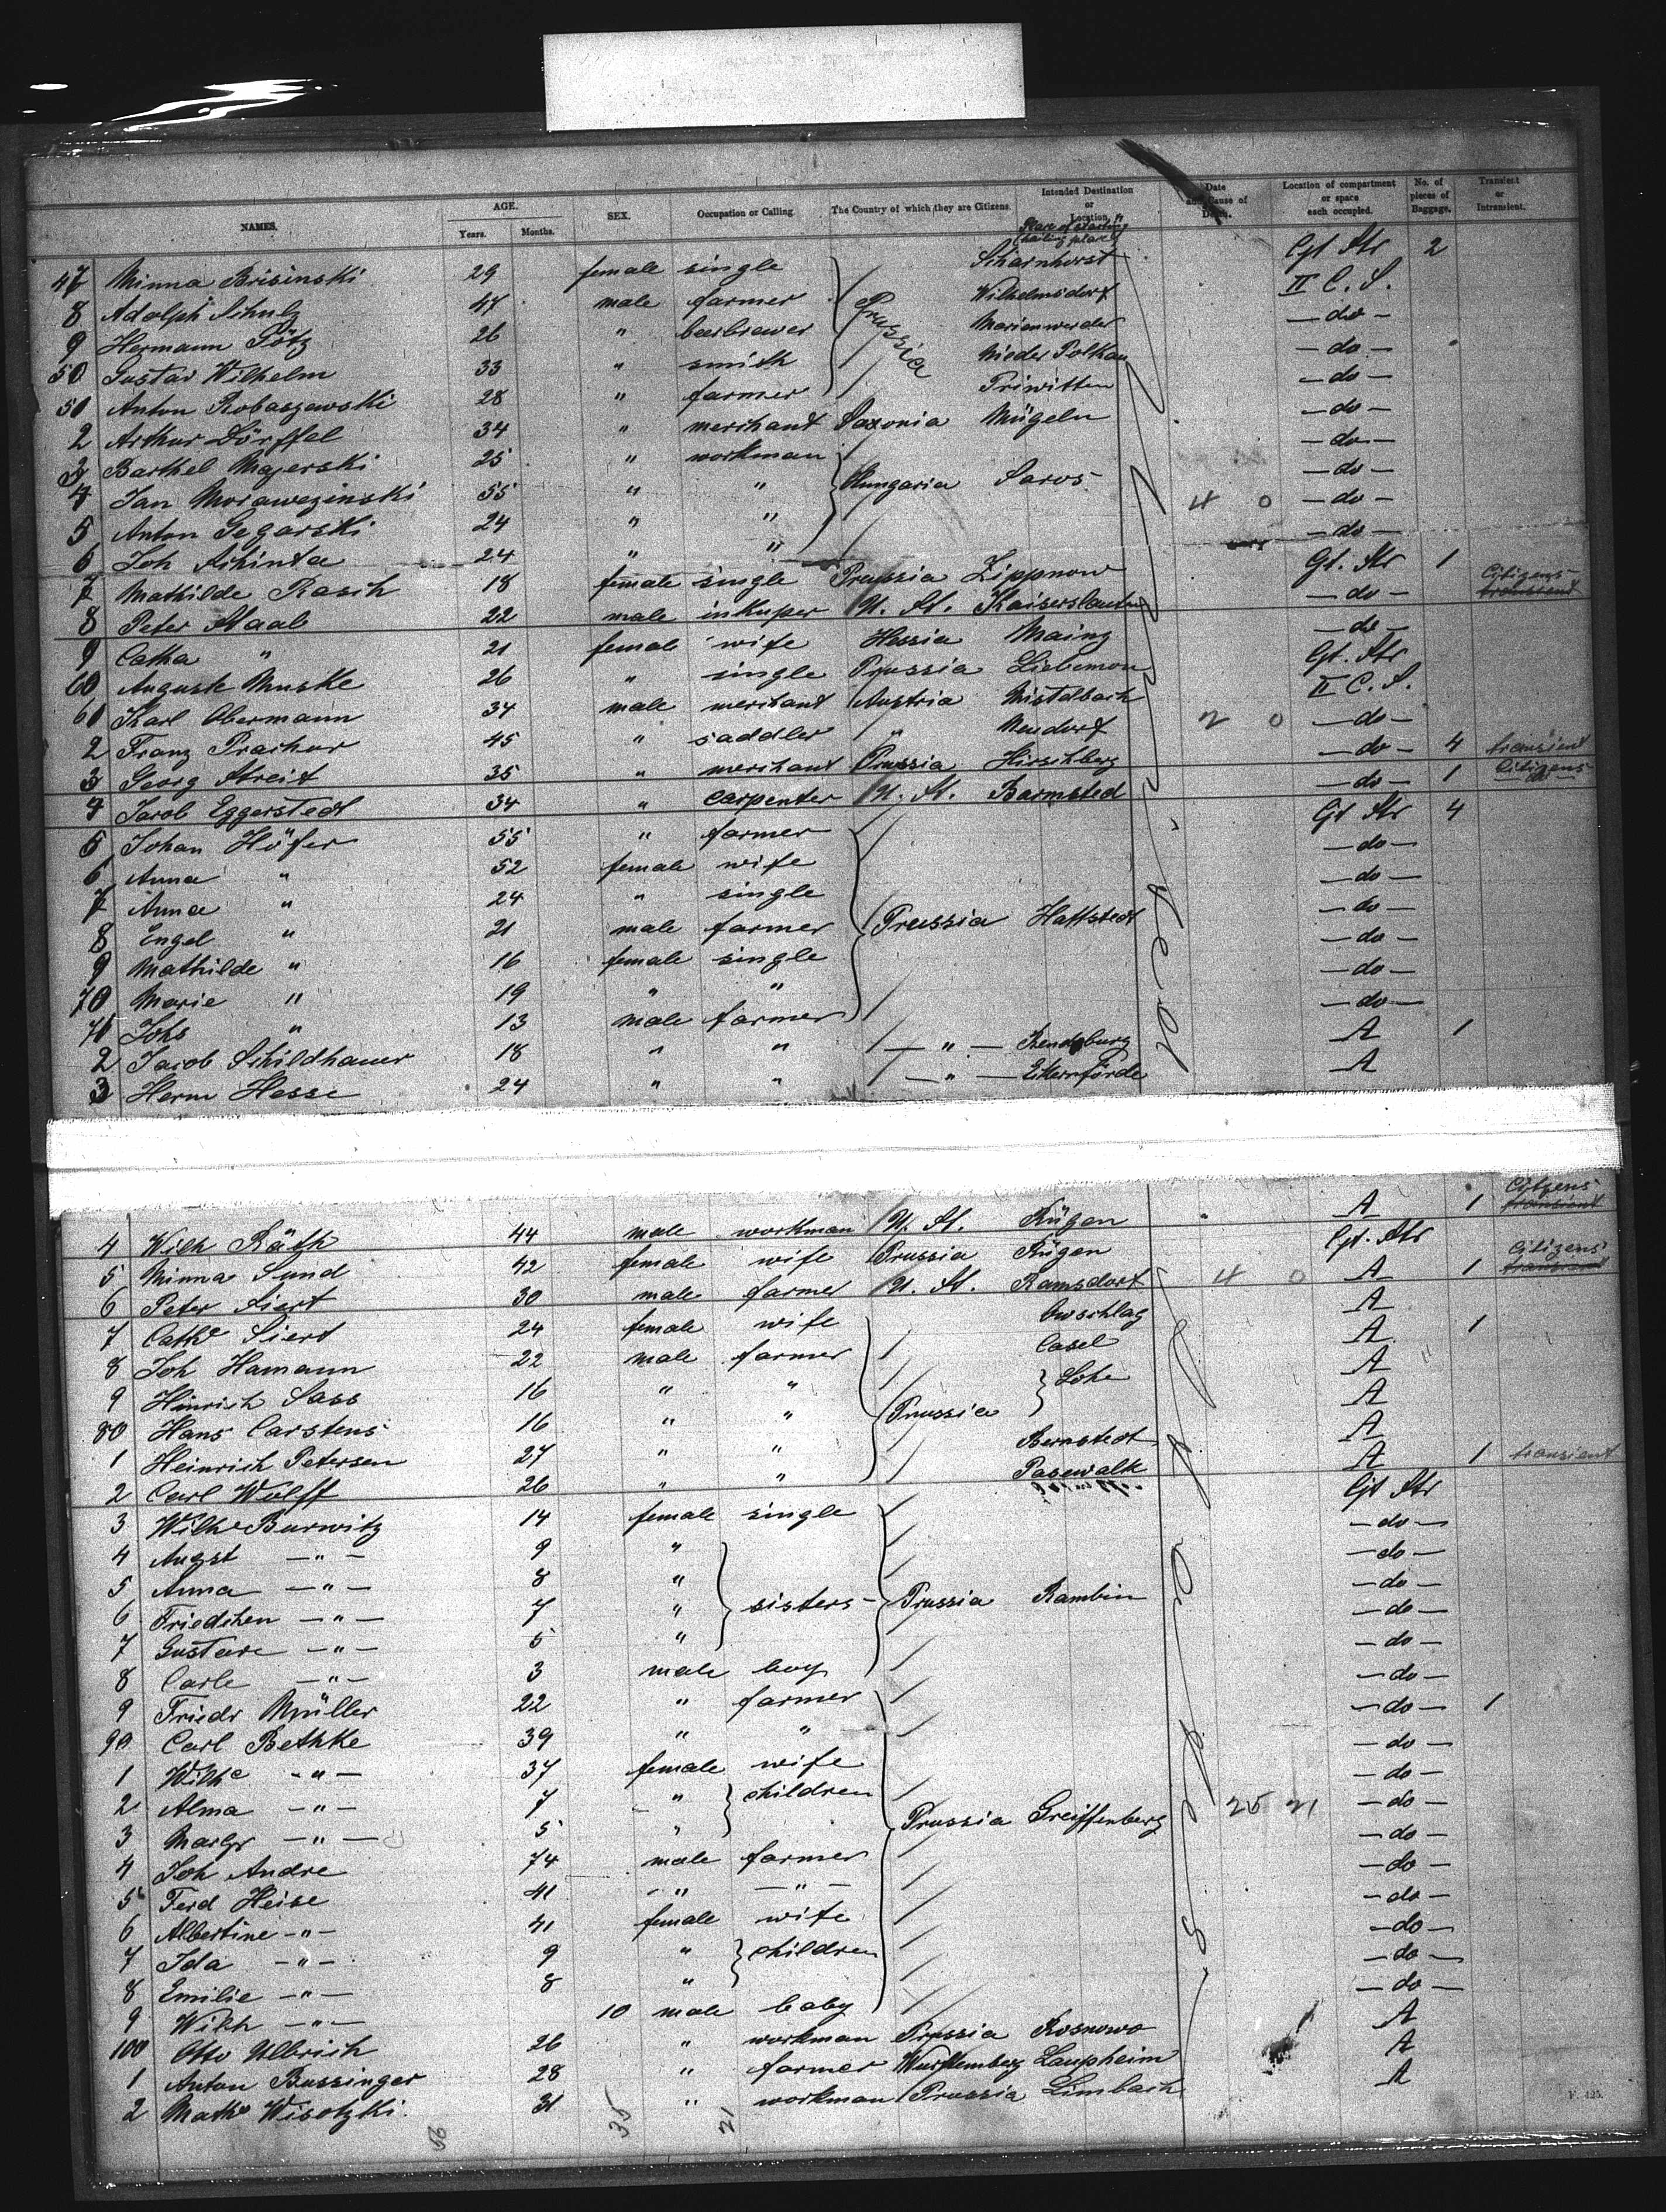 NAMES. AGE. Years. Months. SEX. Occupation or Calling The Country of which they are Citizens. Intended Destination or Location Place of starting (hailing place) Date and Cause of Death. Location of compartment or space each occupied. No. of pieces of Baggage. Transient or Intransient.
47 Minna Brisinski 29 female single Scharnhorst Gt Str 2
8 Adolph Schulz 47 male farmer Wilhelmsdorf II C. S.
9 Hermann Götz 26 " beerbrewer Prussia Marienwerder — do —
50 Gustav Wilhelm 33 " smith Nieder Polkau — do —
51 Anton Robaszewski 28 " farmer Priwitten — do —
2 Arthur Dörffel 34 " merchant Saxonia Mügeln — do —
3 Barthel Majerski 25 " workman — do —
4 Jan Morawezinski 55 " " Hungaria Saros 4 0 — do —
5 Anton Gegarski 24 " " — do —
6 Joh Schinta 24 " " — do —
7 Mathilde Rasch 18 female single Prussia Zippnow Gt. Str 1
8 Peter Staab 22 male inkuper U. St. Kaiserslautern — do — Citizens transient
9 Catha " 21 female wife Hessia Mainz — do —
60 Auguste Muske 26 " single Prussia Liebemon Gt. Str
61 Karl Obermann 34 male merchant Austria Mistelbach II C. S.
2 Franz Prachar 45 " saddler " Neudorf 2 0 — do —
3 Georg Streit 35 " merchant Prussia Hirschberg — do — 4 transient
4 Jacob Eggerstedt 34 " carpenter U. St. Barmsted — do — 1 Citizens
5 Johan Höfer 55 " farmer Gt Str 4
6 Anna " 52 female wife — do —
7 Anna " 24 " single — do —
8 Engel " 21 male farmer Prussia Hattstedt — do —
9 Mathilde " 16 female single — do —
70 Marie " 19 " " — do —
71 Johs " 13 male farmer — do —
2 Jacob Schildhauer 18 " " — " — Rendsburg A 1
3 Herm Hesse 24 " " — " — Eckernförde A
4 Wilh Räth 44 male workman U. St. Rügen A 1 Citizens transient
5 Minna Sund 42 female wife Prussia Rügen Gt. Str
6 Peter Siert 30 male farmer U. St. Ramsdorf 4 0 A 1 Citizens transient
7 Cathe Siert 24 female wife Owschlag A
8 Joh Hamann 22 male farmer Casel A 1
9 Hinrich Sass 16 " " Lohe A "
80 Hans Carstens 16 " " Prussia A
1 Heinrich Petersen 27 " " Bernstedt A
2 Carl Wulff 26 " " Pasewalk A 1 transient
3 Wilhe Burwitz 14 female single Gt Str
4 Augst — " — 9 " — do —
5 Anna — " — 8 " — do —
6 Friedchen — " — 7 " sisters Prussia Rambin — do —
7 Gustave — " — 5 " — do —
8 Carle — " — 3 male boy — do —
9 Friedr Müller 22 " farmer — do —
90 Carl Bethke 39 " " — do — 1
1 Wilhe — " — 37 female wife — do —
2 Alma — " — 7 " children — do —
3 Margr — " — 5 " Prussia Greiffenberg 25 21 — do —
4 Joh Andre 74 male farmer — do —
5 Ferd Heise 41 " — " — — do —
6 Albertine — " — 41 female wife — do —
7 Ida — " — 9 " children — do —
8 Emilie — " — 8 " — do —
9 Wilh — " — 10 male baby — do —
100 Otto Ulbrich 26 " workman Prussia Rosnowo A
1 Anton Bussinger 28 " farmer Wurttemberg Laupheim A
2 Math Wisotzki 31 " workman Prussia Limbach A
56 35 21
F. 425.